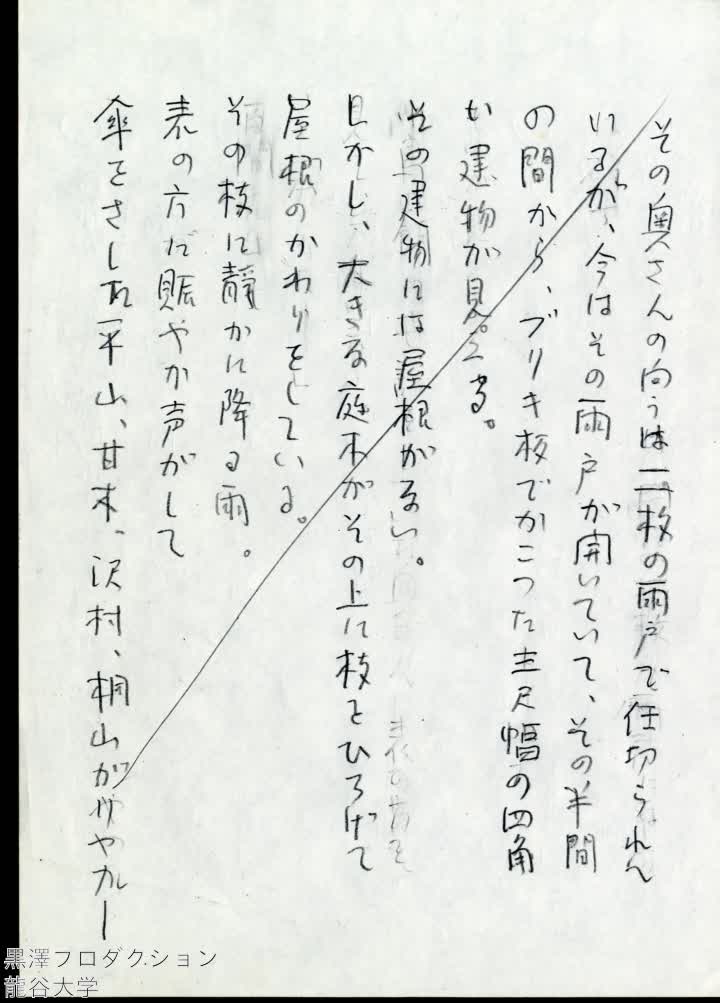 その奥さんの向うは二枚の雨戸で仕切られて
いるが、今はその雨戸が開いていて、その半間
の間から、ブリキ板でかこった三尺幅の四角
い建物が見える。
その建物には屋根がない。
しかし、大きな庭木がその上に枝をひろげて
屋根のかわりをしている。
その枝に静かに降る雨。
表の方で賑やか声がして
傘をさした平山、甘木、沢村、桐山がやカー
黒澤プロダクション
龍谷大学